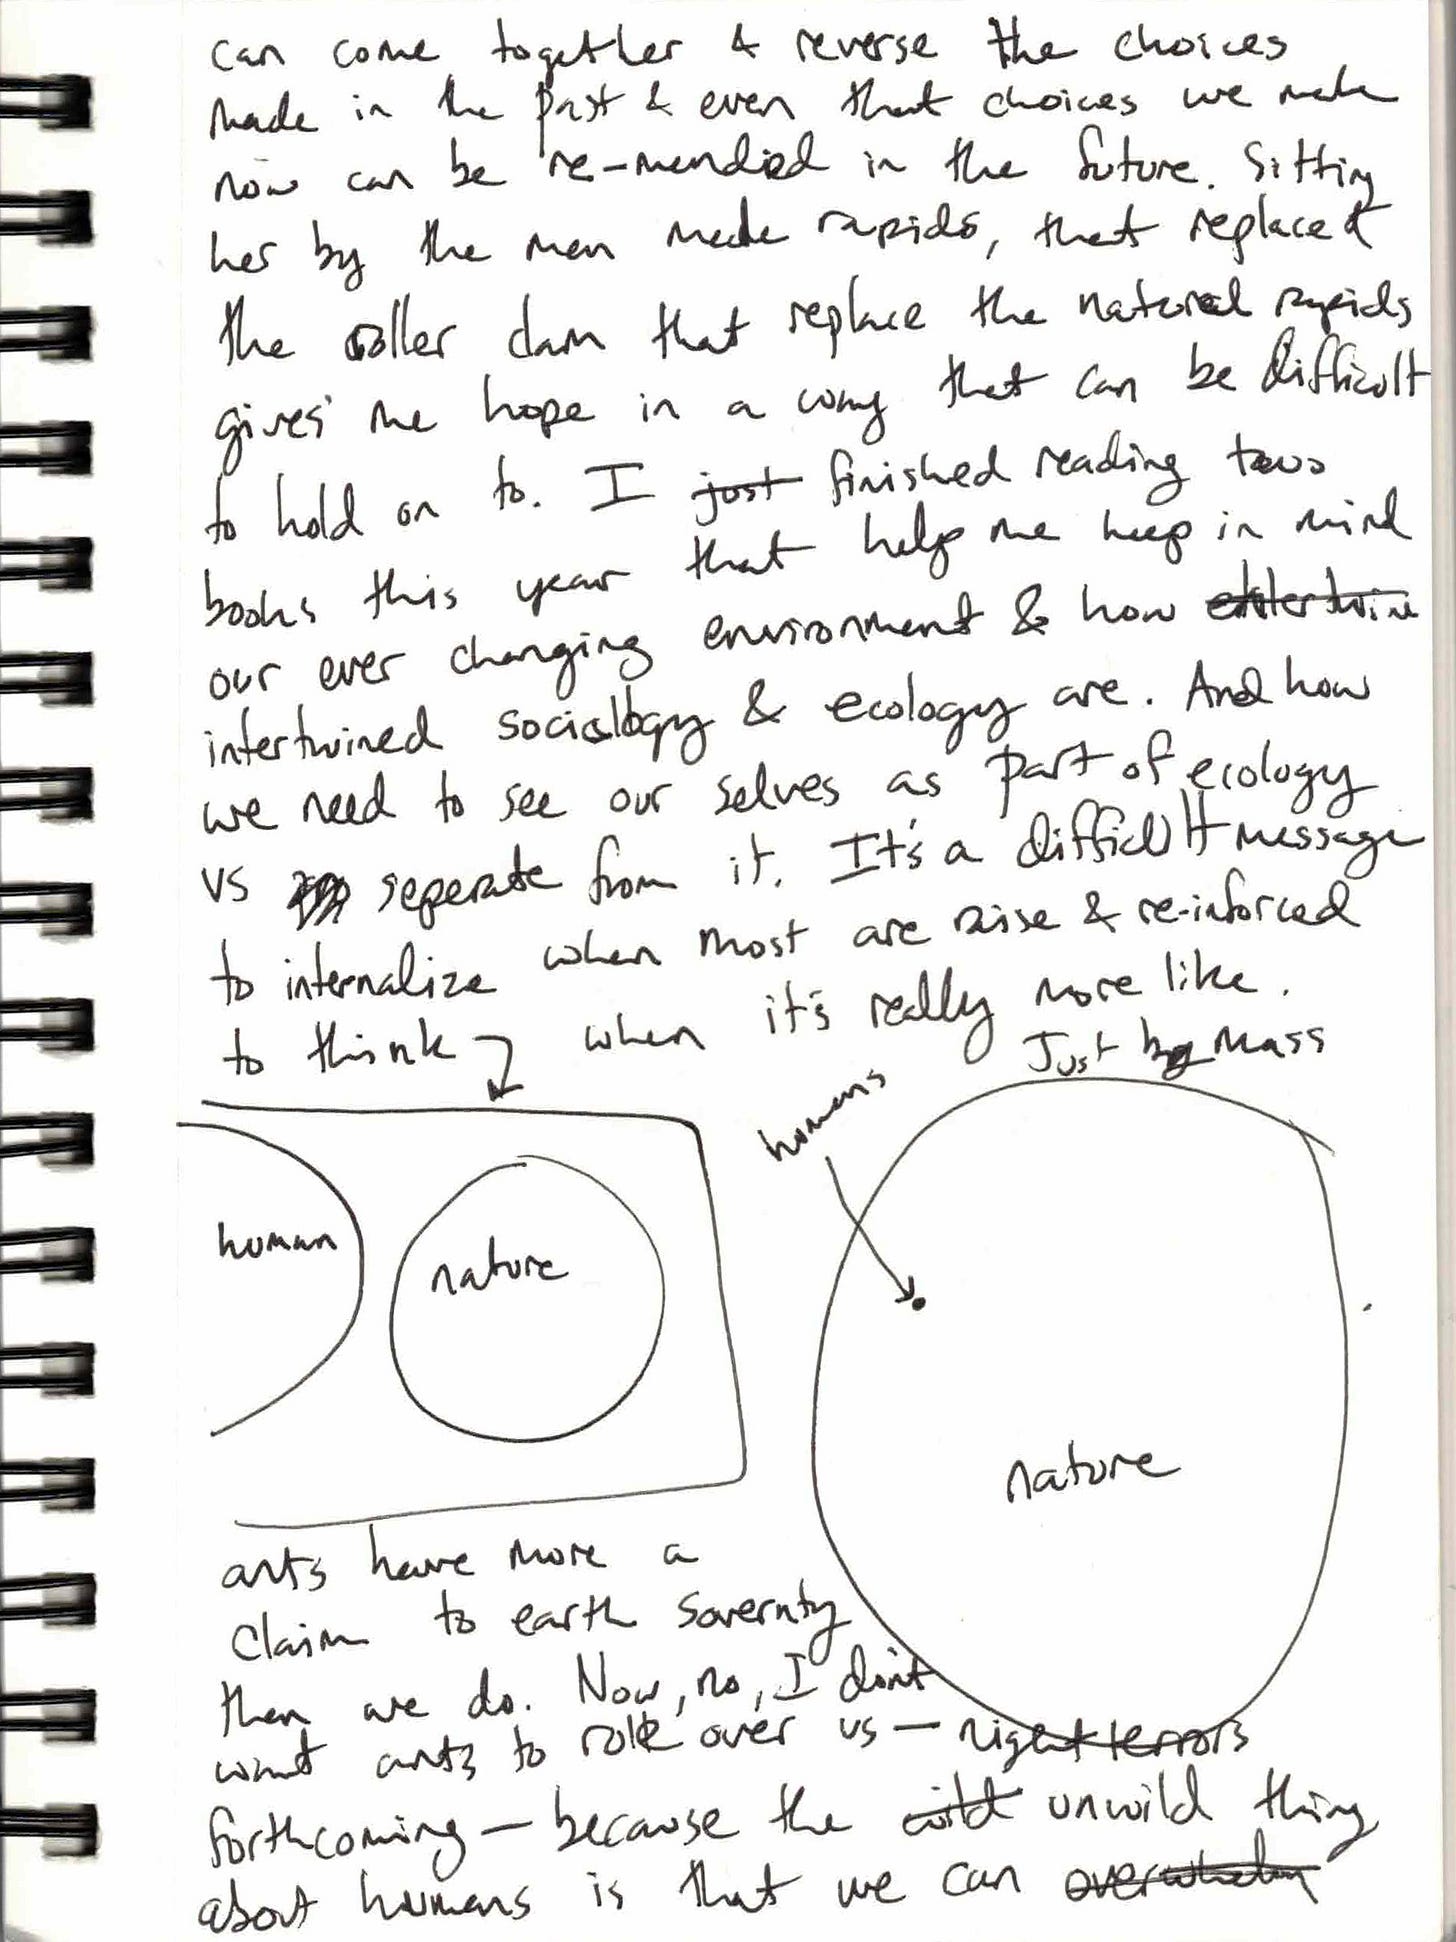 can come together & reverse the choices
made in the past & even that choices we make
now can be re-mended in the future. Sitting
her by the man made rapids, that replaced
the roller dam that replace the natural rapids
gives me hope in a way that can be difficult
to hold on to. I just finished reading two
books this year that help me keep in mind
our ever changing environment & how
intertwined sociology & ecology are. And how
we need to see our selves as part of ecology
vs seperate from it. It's a difficult message
to internalize when most are raise & re-inforced
to think when it's really more like.
Just by mass
humans
human
nature
nature
ants have more a
claim to earth sovernty
then we do. Now, no, I don't
want ants to rule over us — night terrors
forthcoming — because the wild unwild thing
about humans is that we can